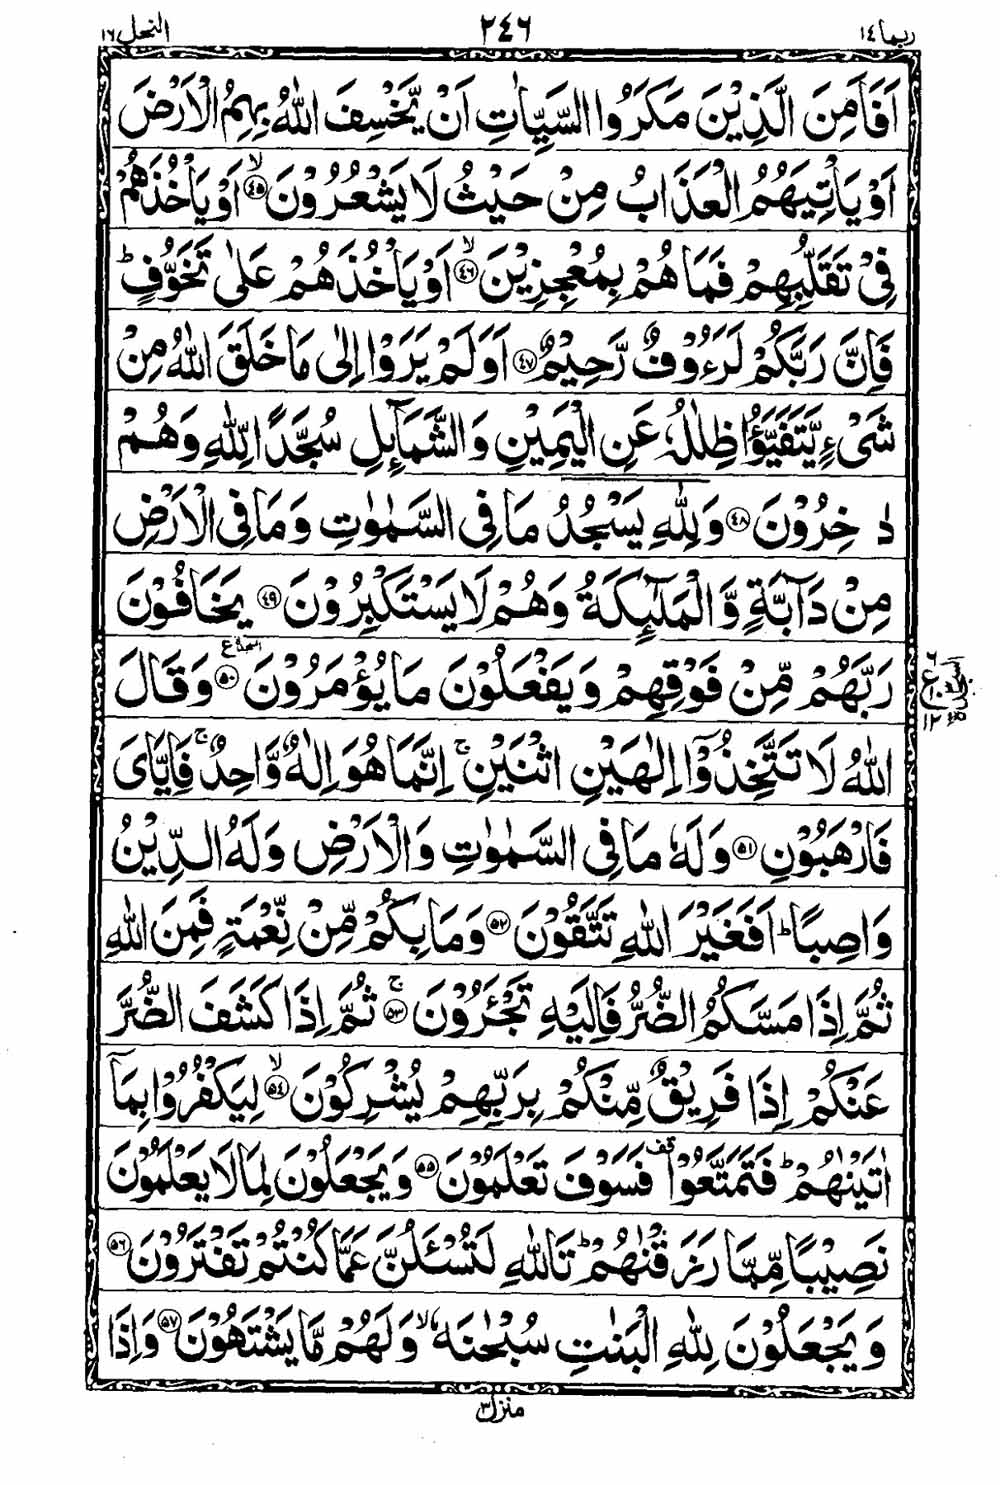 ربما ١٤
٢٤٦
النحل ١٦
اَفَاَمِنَ الَّذِيْنَ مَكَرُوا السَّيِّاٰتِ اَنْ يَّخْسِفَ اللّٰهُ بِهِمُ الْاَرْضَ
اَوْ يَاْتِيَهُمُ الْعَذَابُ مِنْ حَيْثُ لَا يَشْعُرُوْنَ ۙ﴿۴۵﴾ اَوْ يَاْخُذَهُمْ
فِيْ تَقَلُّبِهِمْ فَمَا هُمْ بِمُعْجِزِيْنَ ۙ﴿۴۶﴾ اَوْ يَاْخُذَهُمْ عَلٰى تَخَوُّفٍ ؕ
فَاِنَّ رَبَّكُمْ لَرَءُوْفٌ رَّحِيْمٌ ﴿۴۷﴾ اَوَلَمْ يَرَوْا اِلٰى مَا خَلَقَ اللّٰهُ مِنْ
شَيْءٍ يَّتَفَيَّؤُا ظِلٰلُهٗ عَنِ الْيَمِيْنِ وَالشَّمَآئِلِ سُجَّدًا لِّلّٰهِ وَهُمْ
دٰخِرُوْنَ ﴿۴۸﴾ وَلِلّٰهِ يَسْجُدُ مَا فِي السَّمٰوٰتِ وَمَا فِي الْاَرْضِ
مِنْ دَآبَّةٍ وَّالْمَلٰٓئِكَةُ وَهُمْ لَا يَسْتَكْبِرُوْنَ ﴿۴۹﴾ يَخَافُوْنَ
رَبَّهُمْ مِّنْ فَوْقِهِمْ وَيَفْعَلُوْنَ مَا يُؤْمَرُوْنَ ﴿۵۰﴾ السجدة ع وَقَالَ
السجدة ٣
٦
ع ١٠
١٢
اللّٰهُ لَا تَتَّخِذُوْٓا اِلٰهَيْنِ اثْنَيْنِ ۚ اِنَّمَا هُوَ اِلٰهٌ وَّاحِدٌ ۚ فَاِيَّايَ
فَارْهَبُوْنِ ﴿۵۱﴾ وَلَهٗ مَا فِي السَّمٰوٰتِ وَالْاَرْضِ وَلَهُ الدِّيْنُ
وَاصِبًا ؕ اَفَغَيْرَ اللّٰهِ تَتَّقُوْنَ ﴿۵۲﴾ وَمَا بِكُمْ مِّنْ نِّعْمَةٍ فَمِنَ اللّٰهِ
ثُمَّ اِذَا مَسَّكُمُ الضُّرُّ فَاِلَيْهِ تَجْـَٔرُوْنَ ۚ﴿۵۳﴾ ثُمَّ اِذَا كَشَفَ الضُّرَّ
عَنْكُمْ اِذَا فَرِيْقٌ مِّنْكُمْ بِرَبِّهِمْ يُشْرِكُوْنَ ۙ﴿۵۴﴾ لِيَكْفُرُوْا بِمَآ
اٰتَيْنٰهُمْ ؕ فَتَمَتَّعُوْا قف فَسَوْفَ تَعْلَمُوْنَ ﴿۵۵﴾ وَيَجْعَلُوْنَ لِمَا لَا يَعْلَمُوْنَ
نَصِيْبًا مِّمَّا رَزَقْنٰهُمْ ؕ تَاللّٰهِ لَتُسْـَٔلُنَّ عَمَّا كُنْتُمْ تَفْتَرُوْنَ ﴿۵۶﴾
وَيَجْعَلُوْنَ لِلّٰهِ الْبَنٰتِ سُبْحٰنَهٗ ۙ وَلَهُمْ مَّا يَشْتَهُوْنَ ﴿۵۷﴾ وَاِذَا
منزل ٣